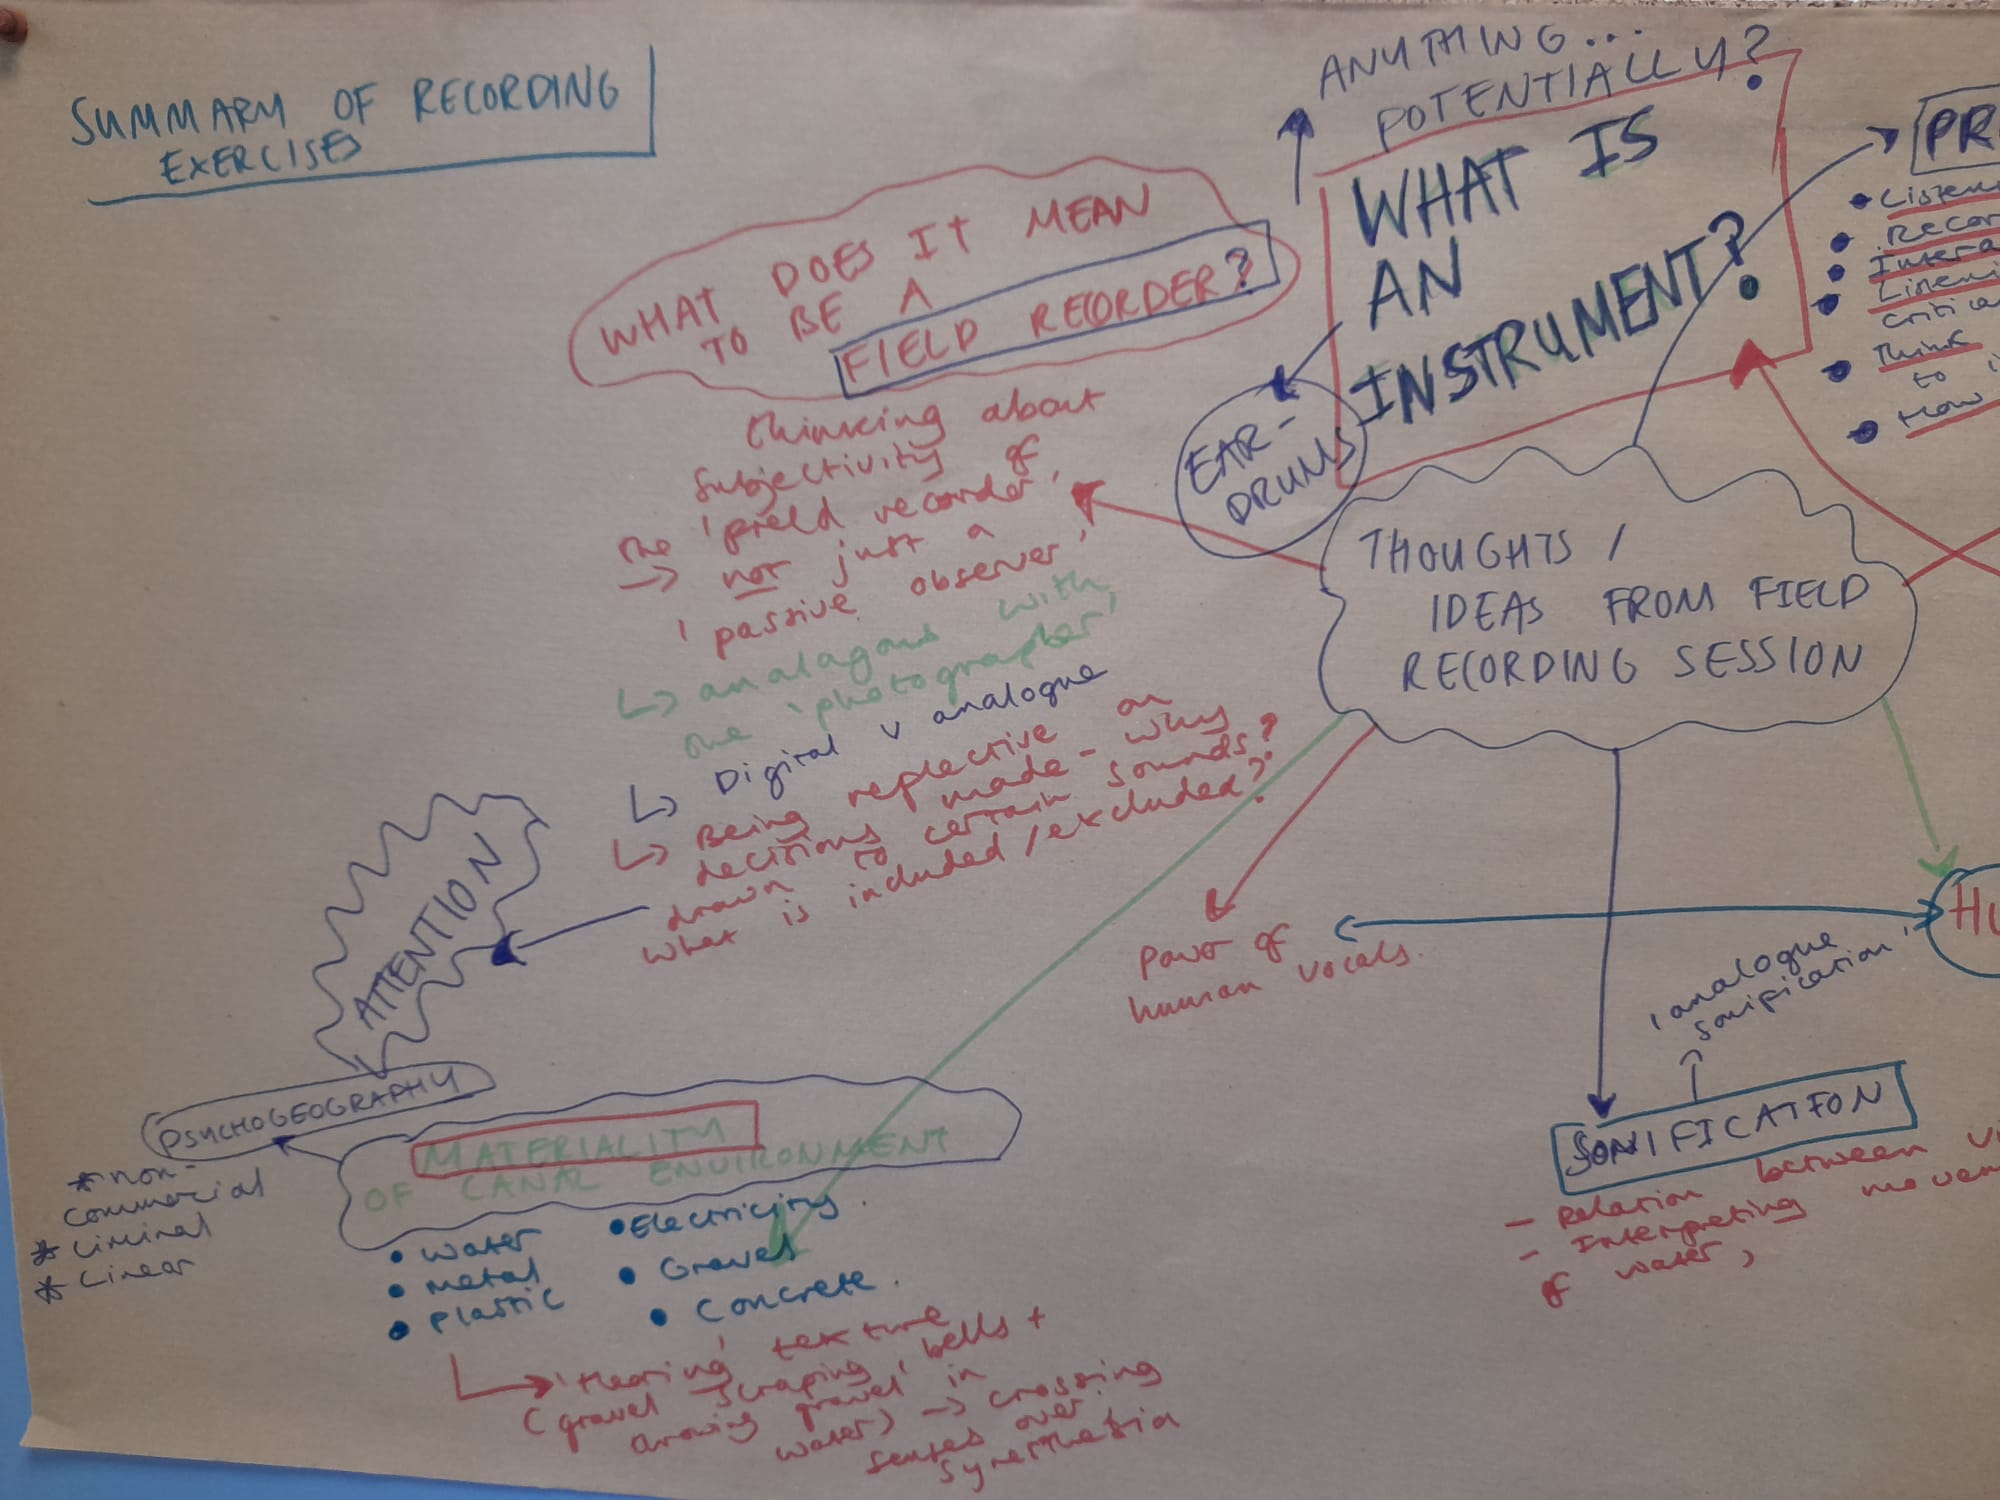 SUMMARY OF RECORDING
EXERCISES
ANYTHING...
POTENTIALLY?
WHAT IS
AN
INSTRUMENT?
EAR-
DRUMS
WHAT DOES IT MEAN
TO BE A
FIELD RECORDER?
thinking about
subjectivity of
the 'field recorder'
→ not just a
'passive observer'
↳ analagous with
the 'photographer'
↳ Digital v analogue
↳ Being reflective on
decisions made - why
drawn to certain sounds?
what is included/excluded?
ATTENTION
PSYCHOGEOGRAPHY
* non-
commercial
* Liminal
* Linear
MATERIALITY
OF CANAL ENVIRONMENT
• water
• metal
• Plastic
• Electricity.
• Gravel
• Concrete.
'Hearing' texture
(gravel scraping bells +
throwing gravel in
water) → crossing
senses over
synesthesia
THOUGHTS /
IDEAS FROM FIELD
RECORDING SESSION
Power of
human vocals.
'analogue
sonification'
SONIFICATION
- Relation between
- Interpreting
of water,
PR
• Listen
• Recor
• Intera
• Listeni
critica
• Think
to
• How
HU